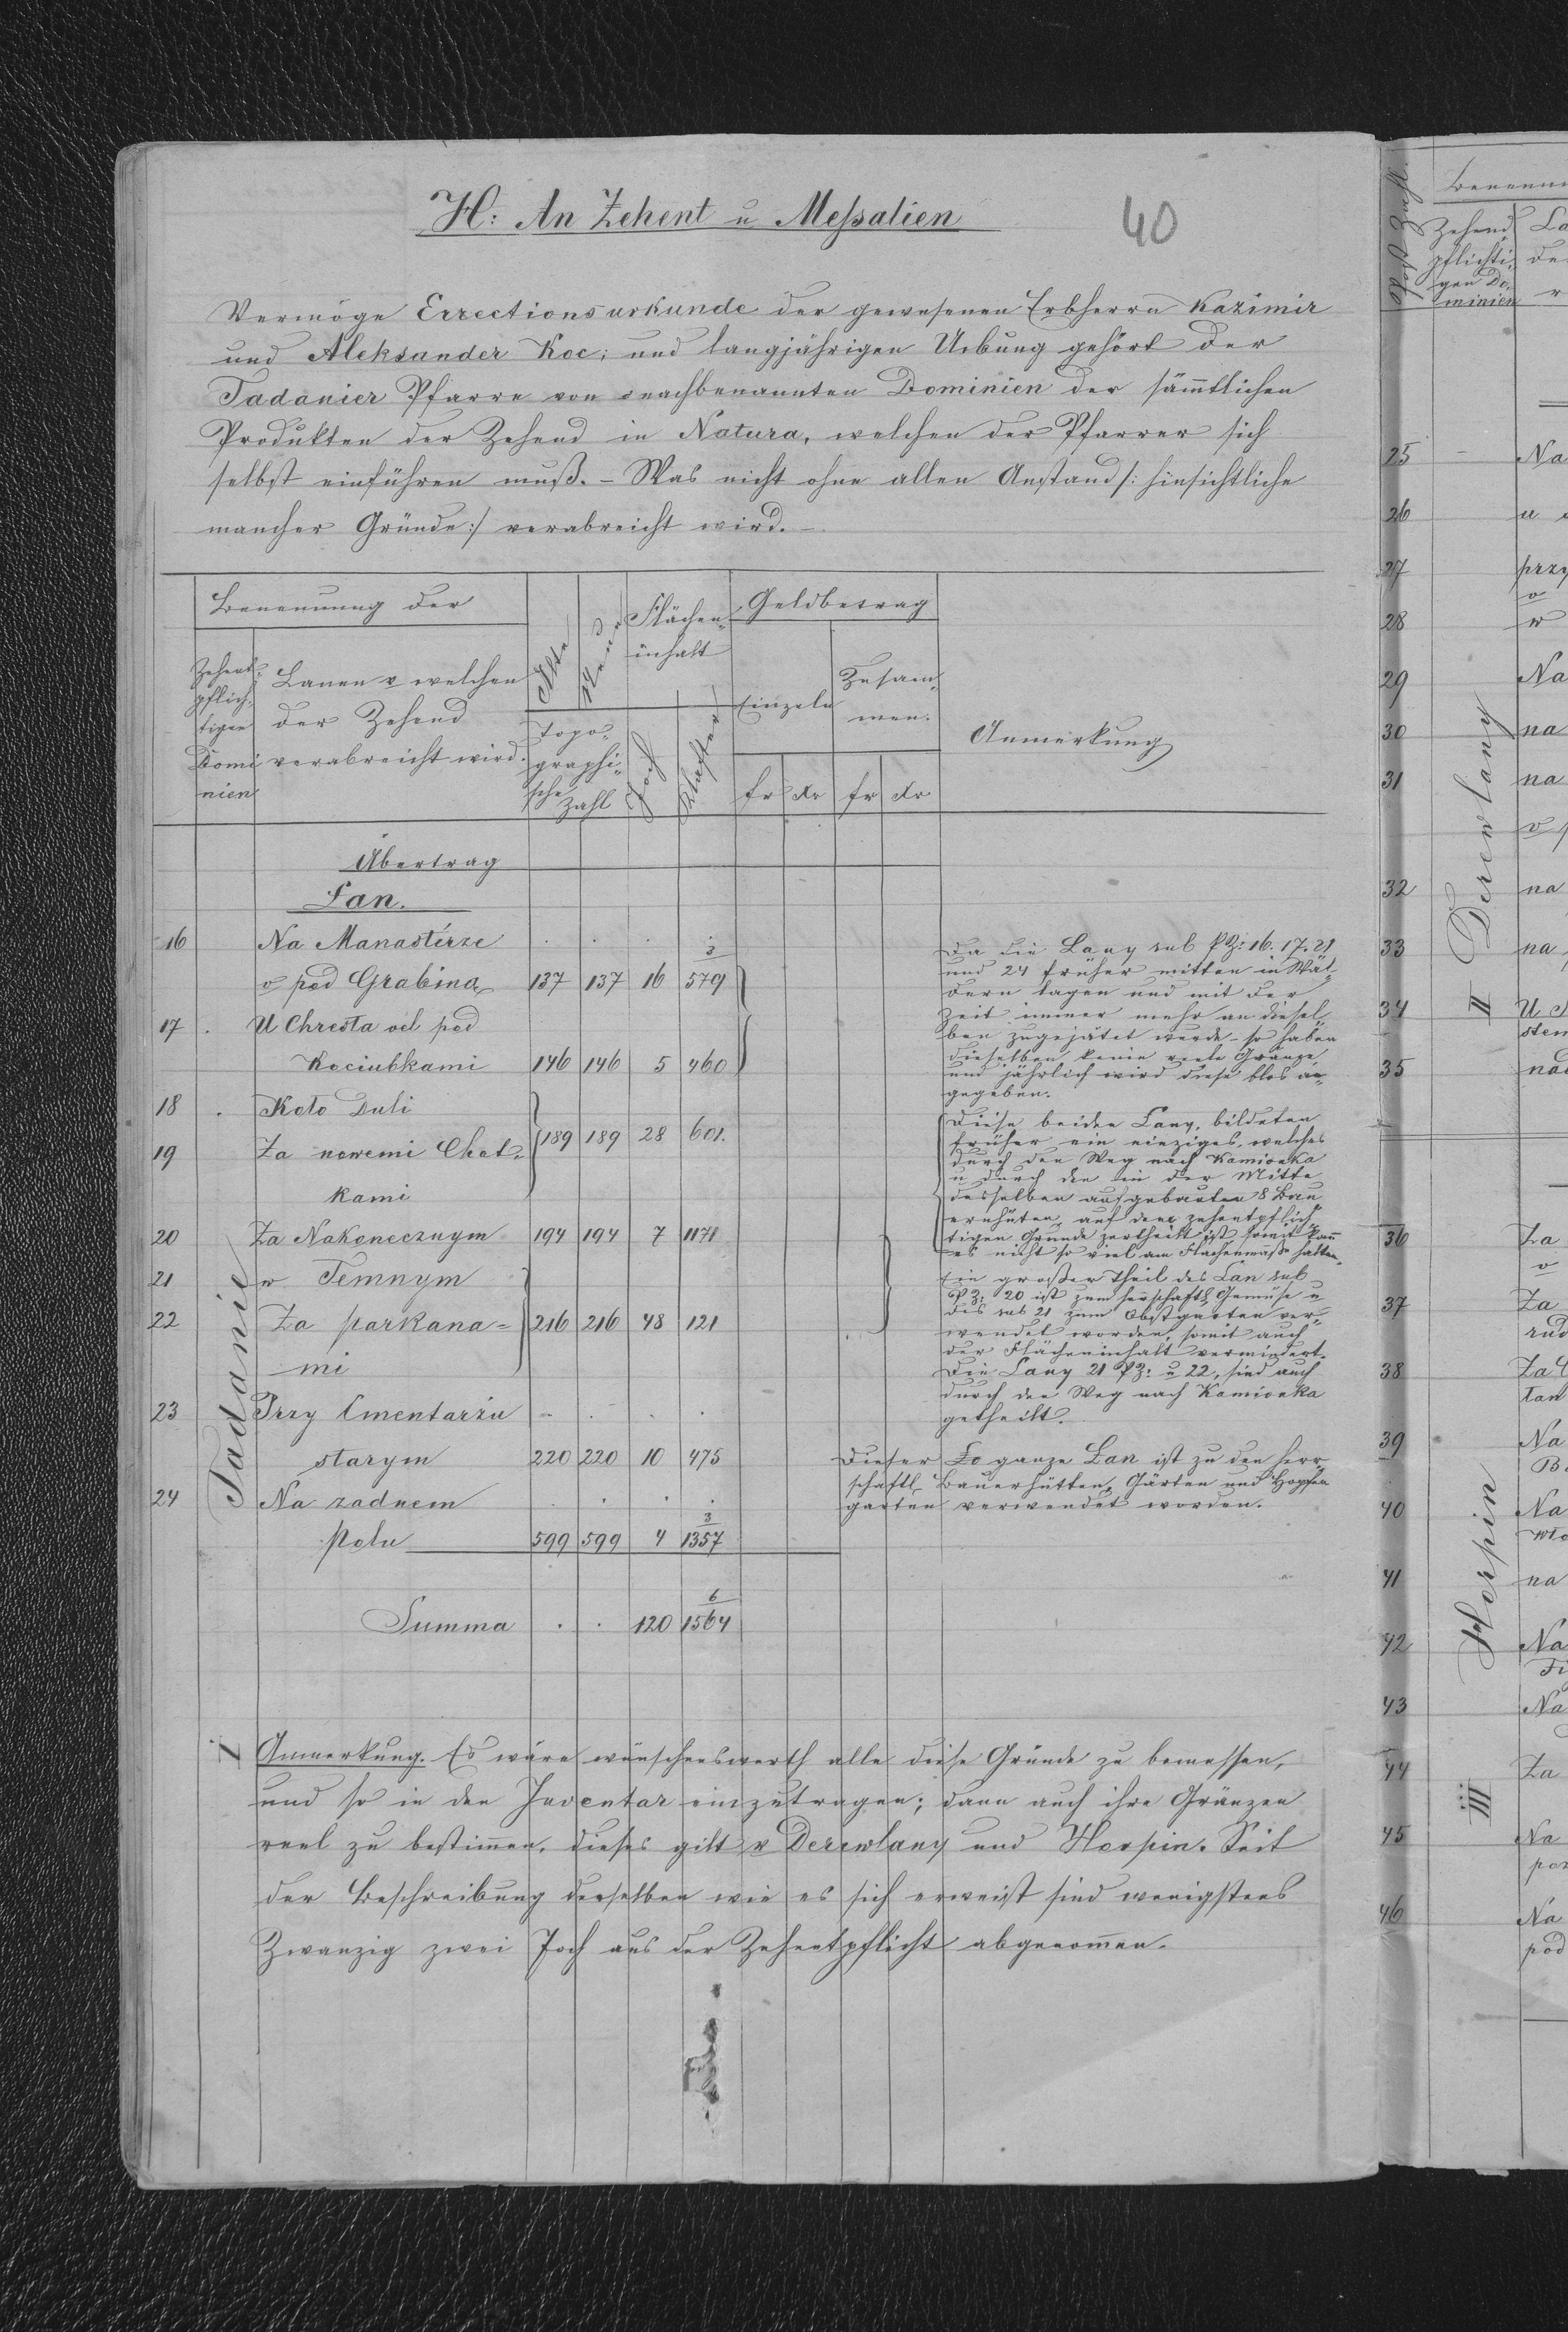 H: An Zehent u Messalien
40
Vermöge Errectionsurkunde der gewesenen Erbherrn Kazimir
und Aleksander Koc; und langjährigen Uibung gehört der
Tadanier Pfarre von nachbenannten Dominien der säm̄tlichen
Produkten der Zehend in Natura, welchen der Pfarrer sich
selbst einführen muß. – Was nicht ohne allen Anstand /: hinsichtliche
mancher Gründe :/ verabreicht wird. –
Benennung der
Zehent-
pflich-
tigen
Domi
nien
Lanen v welchen
der Zehend
verabreicht wird.
Alte
Neue
Topo-
graphi-
sche Zahl
Flächen-
inhalt
Joch
Klafter
Geldbetrag
Einzeln
Zusam-
men.
fr xr fr xr
Anmerkung
Übertrag
Lan.
Tadanie
16 Na Manastérze
v pod Grabiną 137 137 16 579 3
17 U Chresta vel pod
Kociubkami 146 146 5 460
18 Koło Duli
19 Za nowemi Chat-
kami
189 189 28 601.
20 Za Nakonecznym 194 194 7 1171
21 w Temnym
22 Za parkana-
mi
216 216 48 121
23 Przy Cmentarzu
starym 220 220 10 475
24 Na zadnem
Polu 599 599 4 1357 3
Summa . . 120 1564 6
Da die Lany sub PZ: 16. 17. 21
und 24 früher mitten in Wäl-
dern lagen und mit der
Zeit immer mehr an diesel-
ben zugejätet wurde – so haben
dieselben keine reele Gränze
und jährlich wird diese blos an-
gegeben.
Diese beiden Lany, bildeten
früher ein einziges, welches
durch den Weg nach Kamionka
u durch die in der Mitte
desselben aufgebauten 8 Bau
ernhüten, auf dem zehentpflich-
tigen Grunde zertheilt ist somit kan̄
es nicht so viel am Flächenmaße halten.
Ein großer Theil des Lan sub
PZ: 20 ist zum herschaftl Gemüse u
des sub 21 zum Obstgarten ver-
wendet worden, somit auch
der Flächeninhalt vermindert.
Die Lany 21 PZ: u 22, sind auch
durch den Weg nach Kamionka
getheilt.
Dieser Lo ganze Lan ist zu den herr-
schaftl Bauerhütten, Gärten und Hopfen
garten verwendet worden.
I Anmerkung. Es wäre wünschenswerth alle diese Gründe zu bemessen,
und so in den Inventar einzutragen; dann auch ihre Gränzen
reel zu bestim̄en, dieses gilt v Derewlany und Horpin. Seit
der Beschreibung derselben wie es sich erweist sind wenigstens
Zwanzig zwei Joch aus der Zehentpflicht abgenom̄en.
Zehend
pflichti-
gen Do-
minien
II Derewlany
III Horpin
25 Na
26 u
27 przy
28 w
29 Na
30 na
31 na
32 na
33 na
34 U
35 nad
36 Za
37 Za
38 Za
39 Na
40 Na
41 na
42 Na
43 Na
44 Za
45 Na
46 Na
pod